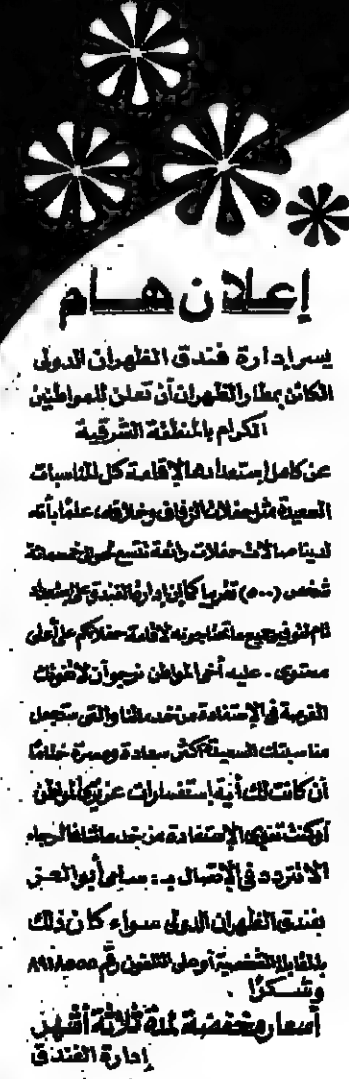 إعلان هام
يسر إدارة فندق الظهران الدولى
الكائن بمطار الظهران أن تعلن للمواطنين
الكرام بالمنطقة الشرقية
عن كامل إستعدادها لإقامة كل المناسبات
السعيدة مثل حفلات الزفاف وخلافه، علمًا بأنه
لدينا صالات حفلات رائعة تتسع لحوالى خمسمائة
شخص (٥٠٠) تقريبا كما إن إدارة الفندق على إستعداد
تام لتوفير جميع ما تحتاجونه لإقامة حفلاتكم على أعلى
مستوى . عليه أخى المواطن نرجو أن لا تفوتك
الفرصة فى الإستفادة من خدماتنا والتى ستجعل
مناسبتك السعيدة أكثر سعادة ومسرة ختامًا
أن كانت لك أية إستفسارات عزيزى المواطن
أو كنت تنوى الإستفادة من خدماتنا فالرجاء
الا تتردد فى الإتصال بـ : سامى أبو العز
بفندق الظهران الدولى سواء كان ذلك
بالمقابلة الشخصية أو على التلفون رقم ٨٩١٨٥٥٥
وشكرًا .
أسعار مخفضة لمدة ثلاثة أشهر
إدارة الفندق